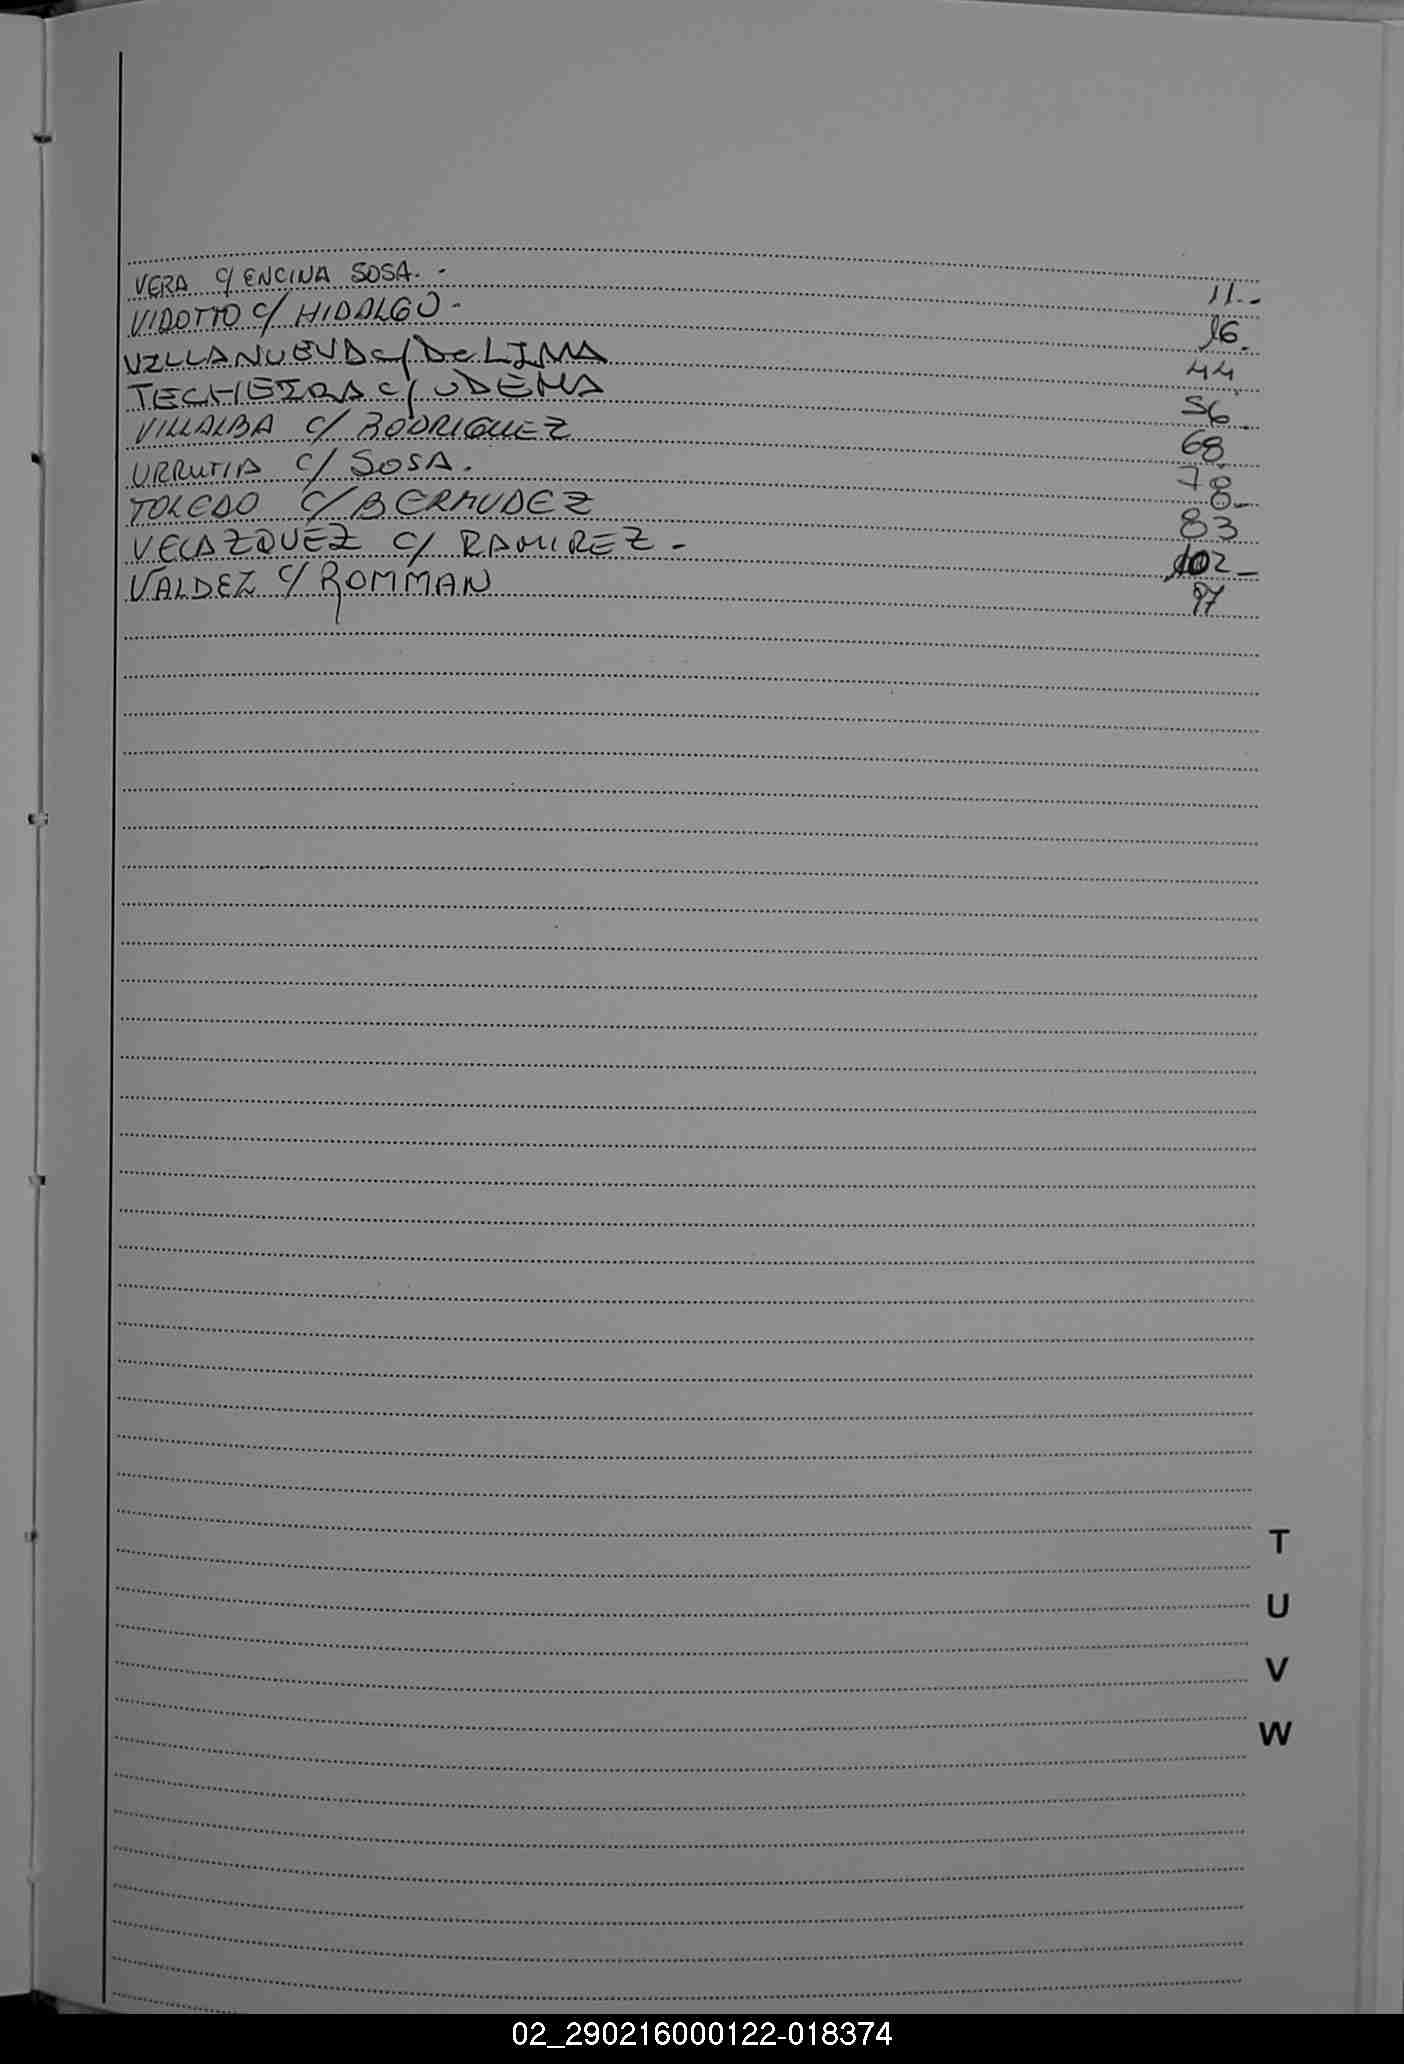 VERA C/ ENCINA SOSA.- 11.-
VIDOTTO C/ HIDALGO- 16.
VILLANUEVA C/ De LIMA 44
TECHEIRA C/ UDEMA 56.
VILLALBA C/ RODRIGUEZ 68
URRUTIA C/ SOSA. 78-
TOLEDO C/ BERMUDEZ 83
VELAZQUEZ C/ RAMIREZ- 102-
VALDEZ C/ ROMMAN 97
T
U
V
W
02_290216000122-018374